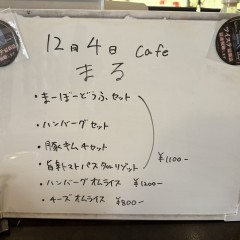 12月4日 cafe
まる
・まーぼーどうふセット
・ハンバーグセット
・豚キムチセット
・旨辛トマトパスタorリゾット
¥1100-
・ハンバーグオムライス ¥1200-
・チーズオムライス ¥800-